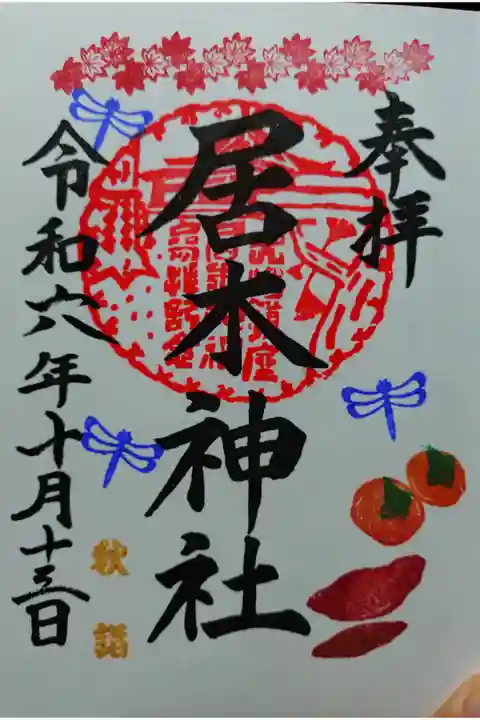 奉拝
居木神社
令和六年十月十三日
秋詣